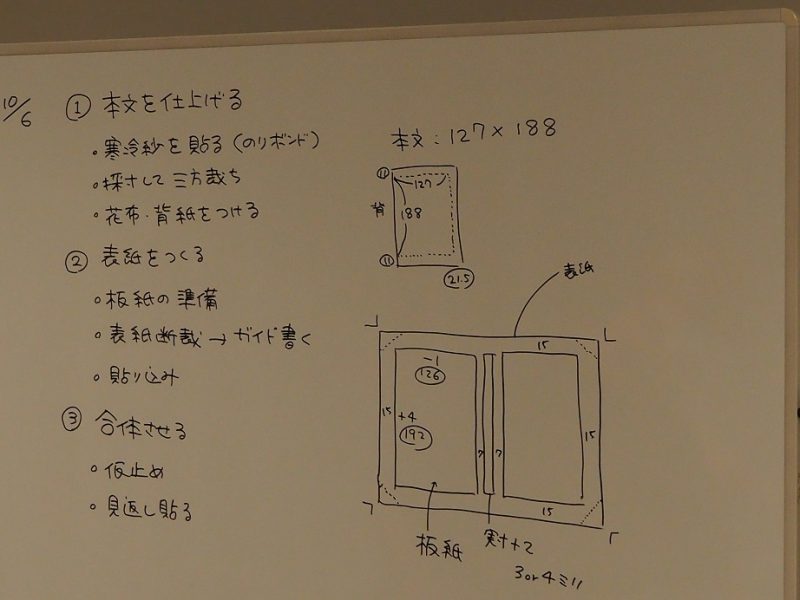 10/6
① 本文を仕上げる
・寒冷紗を貼る(のりボンド)
・採寸して三方裁ち
・花布・背紙をつける
② 表紙をつくる
・板紙の準備
・表紙断裁→ガイド書く
・貼り込み
③ 合体させる
・仮止め
・見返し貼る
本文:127×188
⑪
127
背
188
⑪
21.5
表紙
15
-1
126
15
+4
192
15
7
7
15
板紙
実寸+2
3or4ミリ